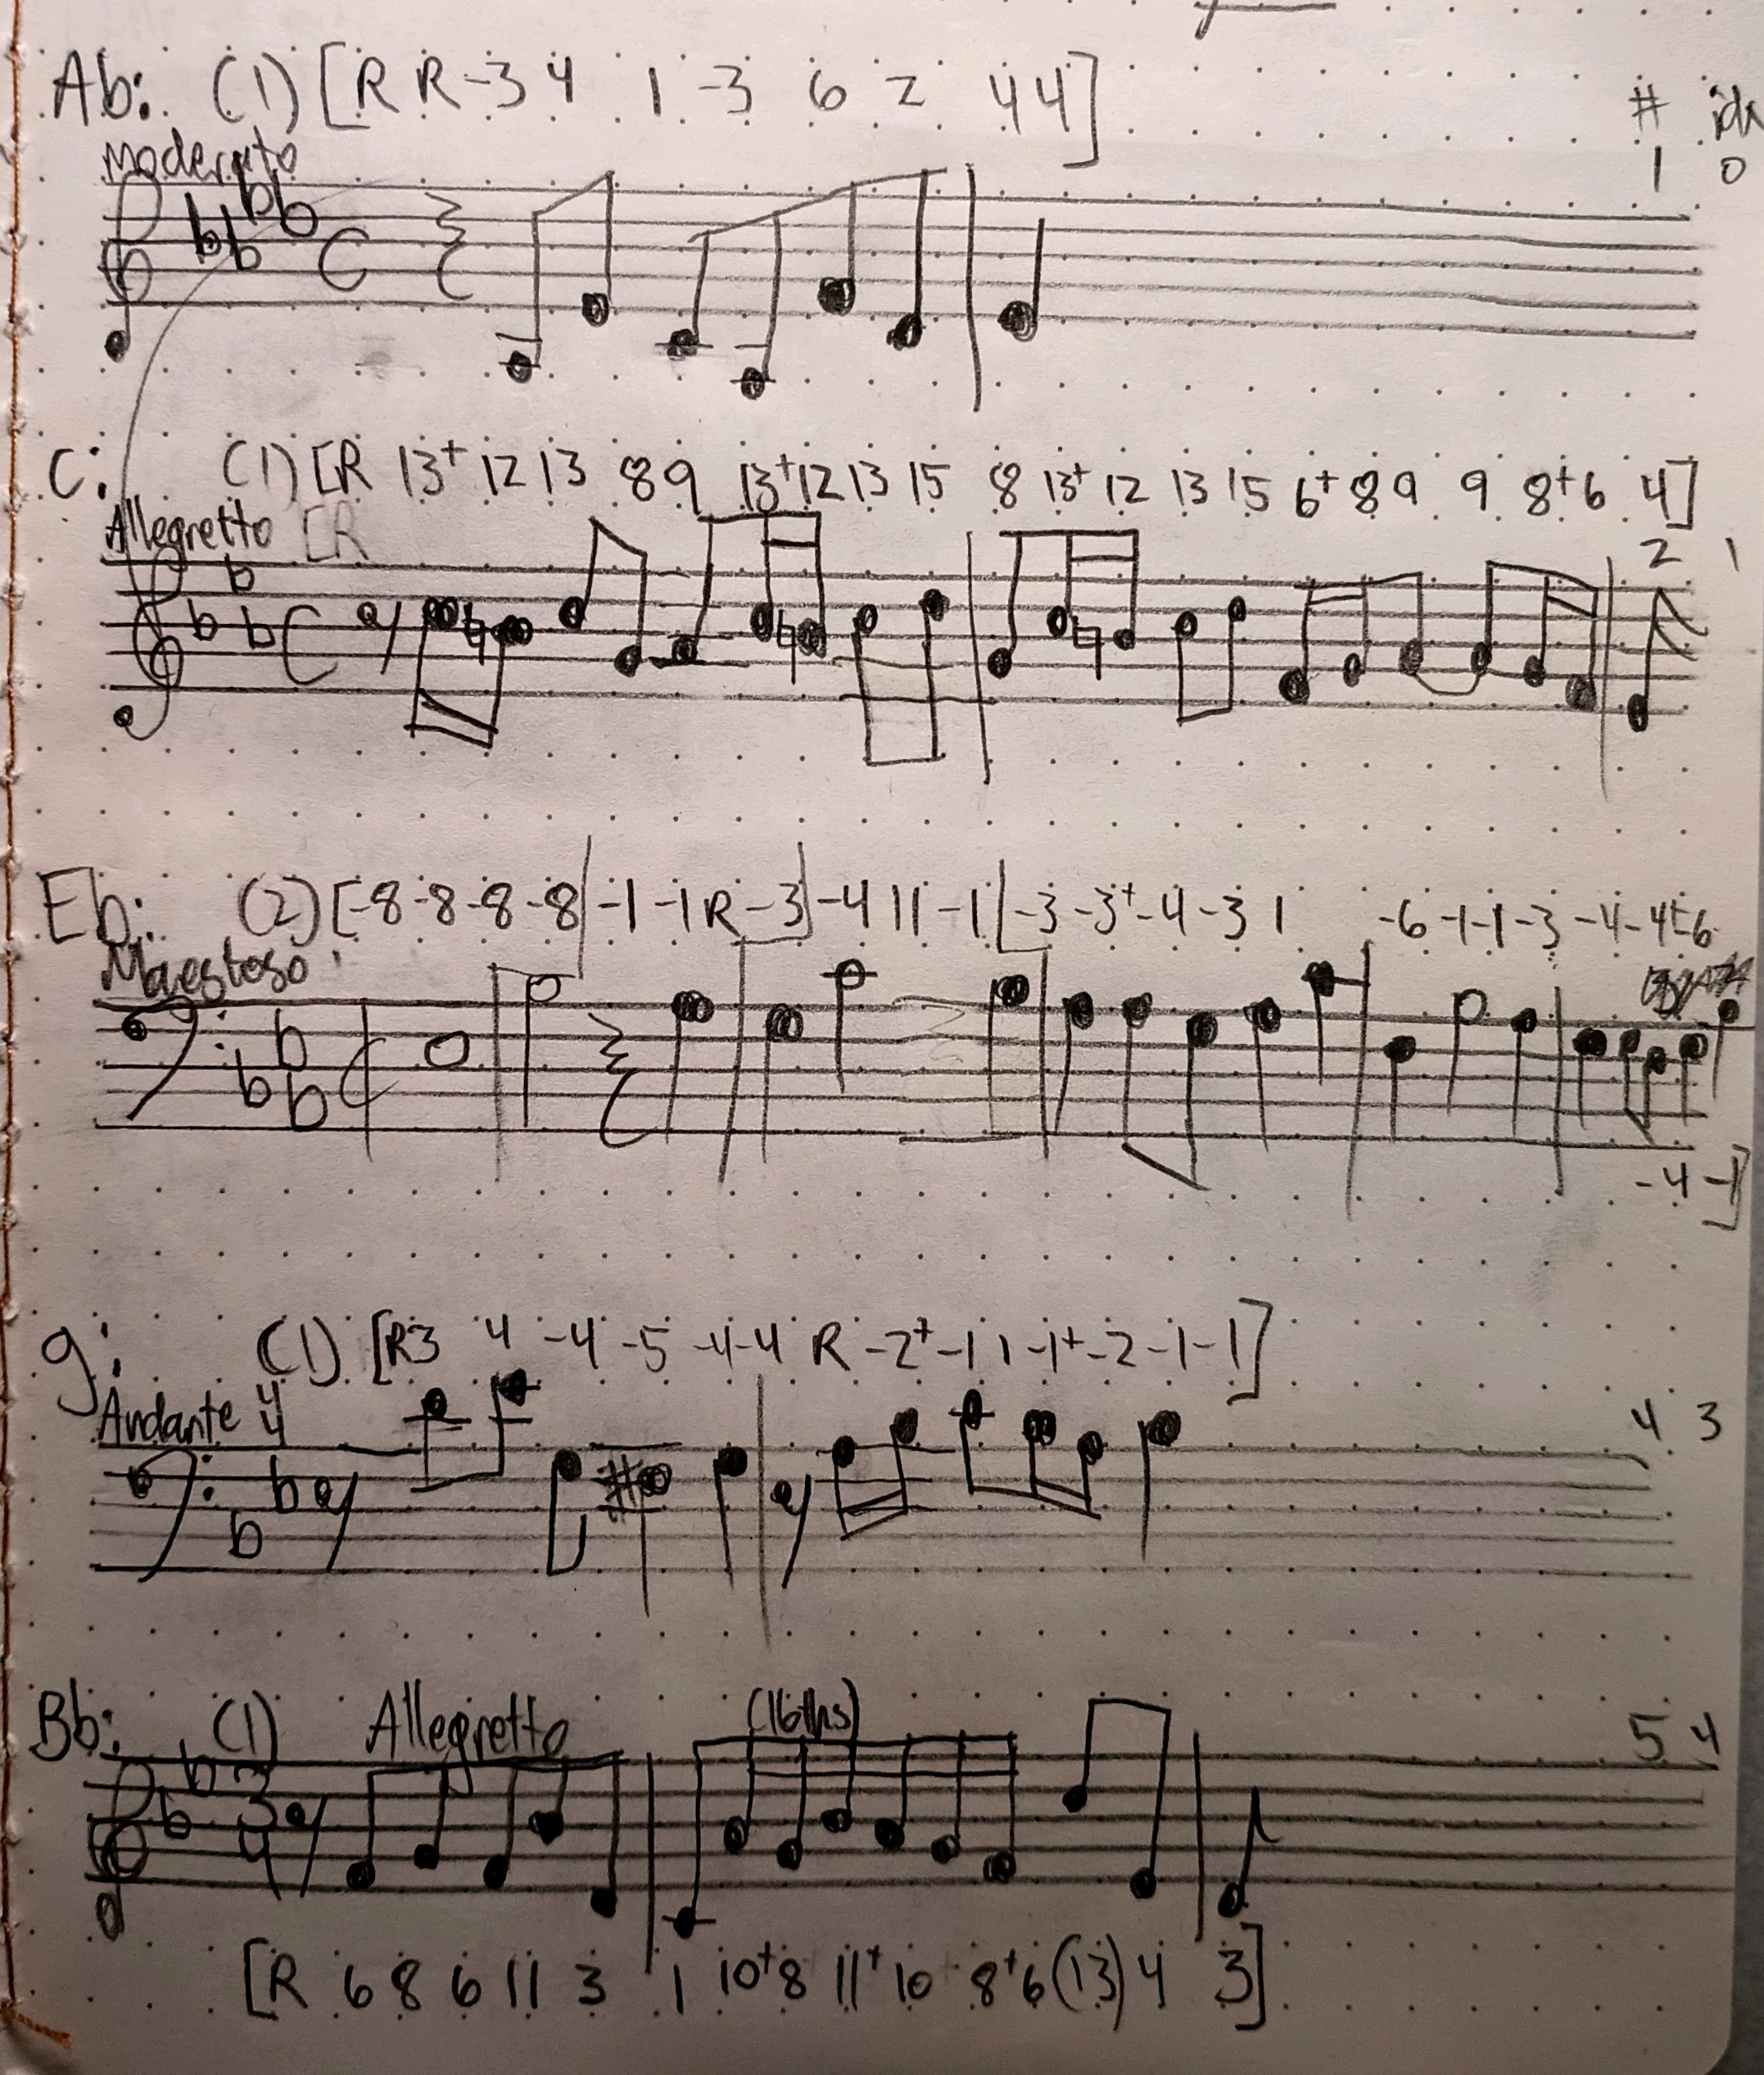 Ab: (1) [R R -3 4 1 -3 6 2 4 4]
# idx
Moderato
1 0
C
C: (1) [R 13+ 12 13 8 9 13+ 12 13 15 8 13+ 12 13 15 6+ 8 9 9 8+ 6 4]
Allegretto [R
2 1
C
Eb: (2) [-8 -8 -8 -8 | -1 -1 R -3] -4 11 -1 [-3 -3+ -4 -3 1 -6 -1 -1 -3 -4 -4+ -6
Maestoso
C
-4 -1]
g: (1) [R3 4 -4 -5 -4 -4 R -2+ -1 1 -1+ -2 -1 -1]
Andante 4 4
4 3
Bb: (1) Allegretto (16ths)
5 4
3 4
[R 6 8 6 11 3 1 10+ 8 11+ 10 8+ 6 (13) 4 3]